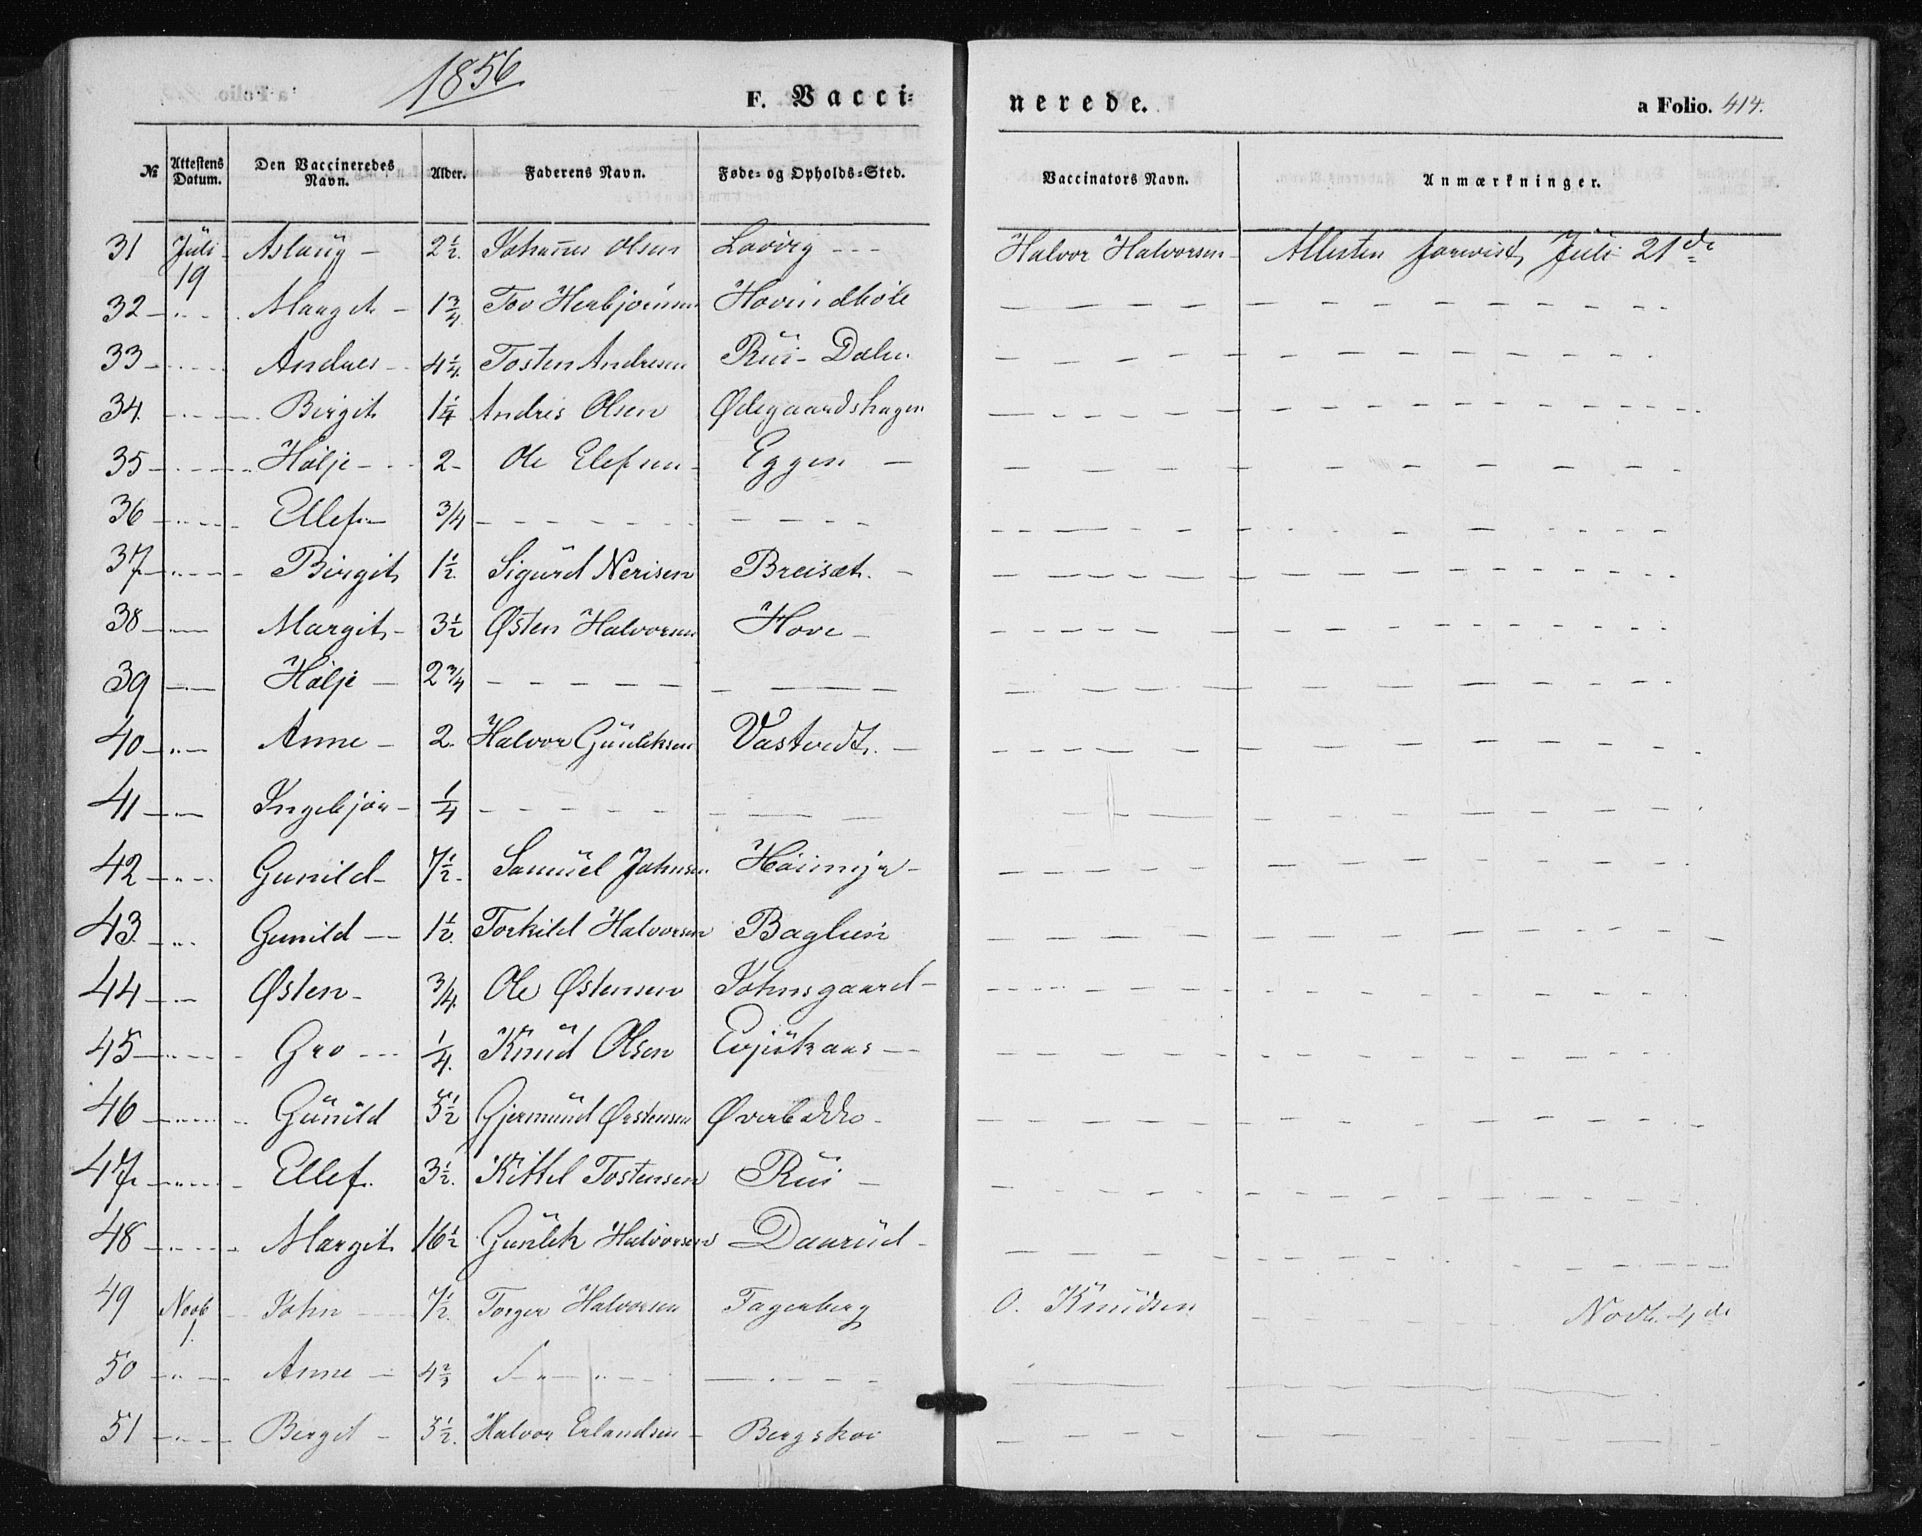 1856
F. Vacci-
nerede.
a Folio. 414.
№ Attestens Datum. Den Vaccineredes Navn. Alder. Faderens Navn. Føde- og Opholds-Sted. Vaccinators Navn. Anmærkninger.
31 Juli 19 Aslaug - 2 1/2. Johannes Olsen Halvor Halvorsen - Attesten forevist Juli 21de
32 - Margit - 1 3/4 Tov Herbjørnsen
33 - Andres - 4 1/4. Tosten Andresen Rui - Dalen
34. - Birgit 1 1/4 Andris Olsen Ødegaardshagen
35 - Halje - 2 - Ole Elefsen - Eggen -
36 - Ellef - 3/4 - - - -
37 - Birgit 1 1/2. Sigurd Nerisen Breisæt. -
38 - Margit - 3 1/2 Østen Halvorsen Hove -
39 - Halje - 2 3/4 - - - -
40 - Anne - 2. Halvor Gunleksen Vastvedt. -
41 - Ingebjør - 1/4 - - - -
42 - Gunild - 7 1/2. Samuel Johnsen Haimyr -
43. - Gunild - 1 1/2. Torkild Halvorsen Baglien
44 - Østen - 3/4. Ole Østensen Johnsgaard -
45 - Gro - 1/4. Knud Olsen Evjukaas -
46 - Gunild 5 1/2 Gjermund Østensen Øverbakke -
47 - Ellef. 3 1/2. Kittel Tostensen Rui -
48 - Margit 16 1/2 Gunlek Halvorsen Daarud -
49 Novb 1. John - 7 1/2. Torger Halvorsen Fagerberg O. Knudsen Novb. 4de
50 - Anne - - - -
51 - Birgit - 3 1/2. Halvor Erlandsen - Bergskov